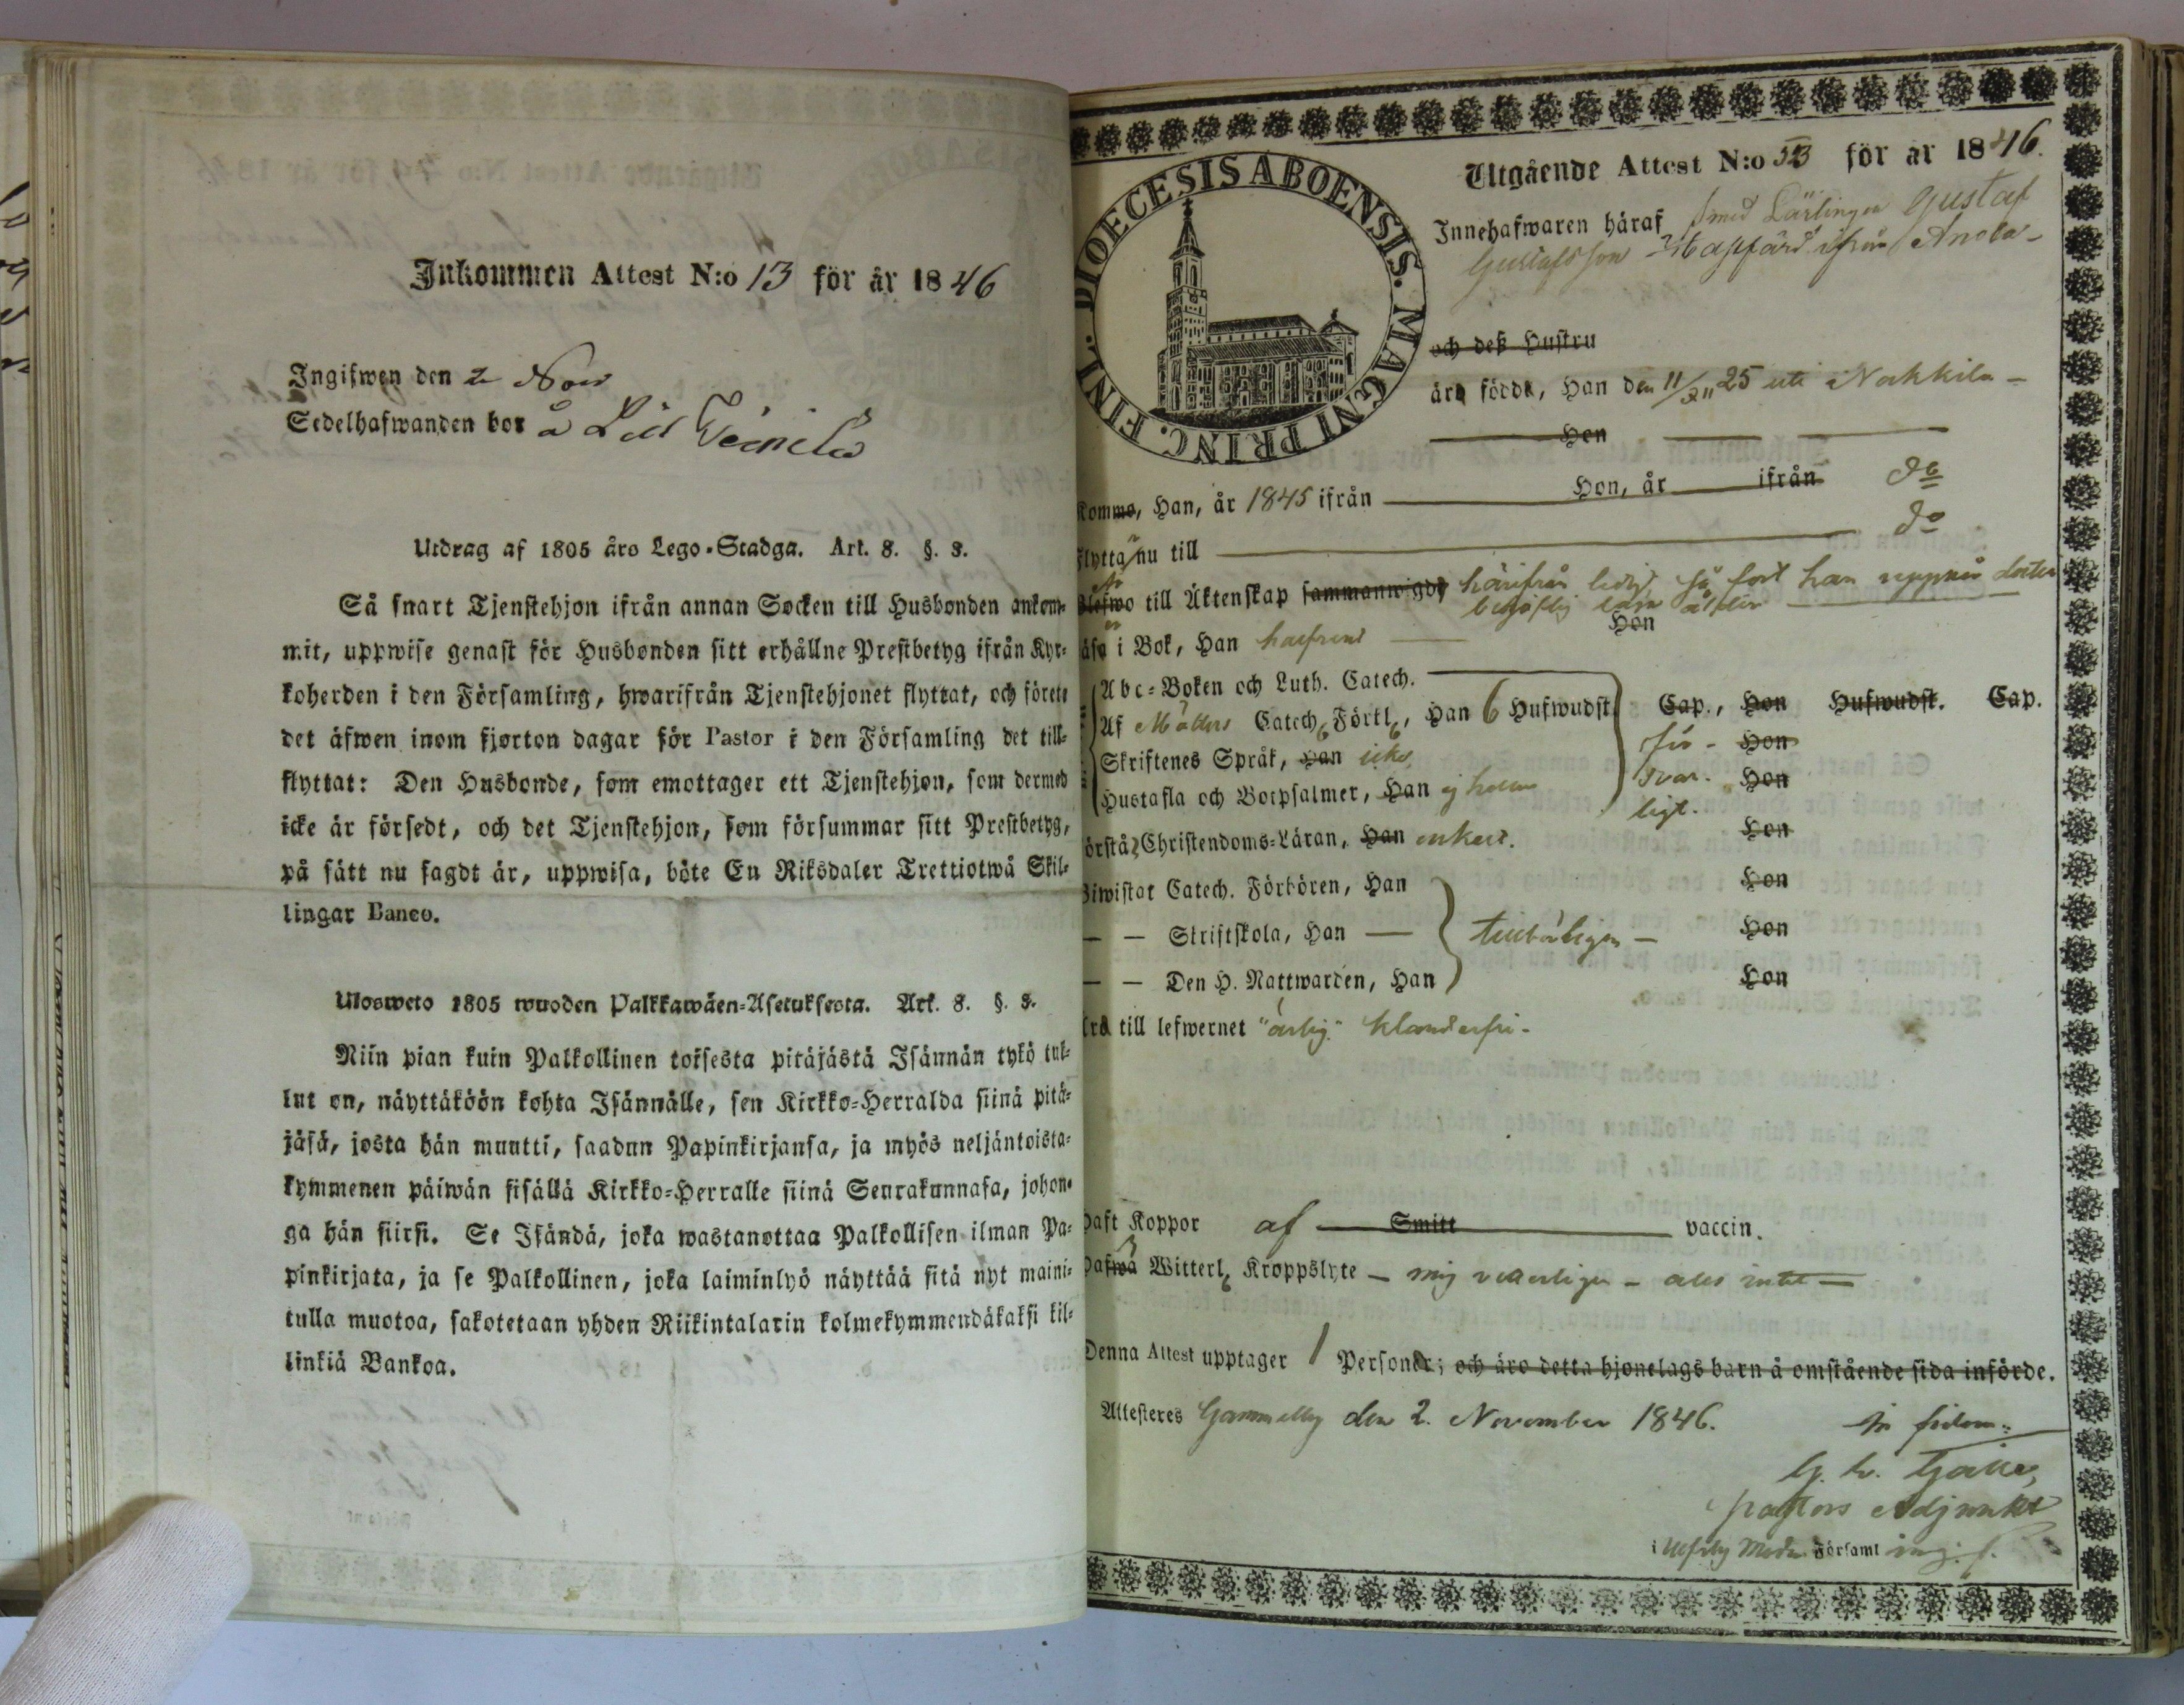 Inkommen Attest N:o 13 för år 1846
Ingifwen den 2 Nov
Sedelhafwanden bor å
Utdrag af 1805 års Lego-Stadga. Art. 8. §. 3.
Så snart Tjenstehjon ifrån annan Socken till Husbonden ankom-
mit, uppwise genast för Husbonden sitt erhållne Prestbetyg ifrån Kyr-
koherden i den Församling, hwarifrån Tjenstehjonet flyttat, och förete
det äfwen inom fjorton dagar för Pastor i den Församling det till-
flyttat: Den Husbonde, som emottager ett Tjenstehjon, som dermed
icke är försedt, och det Tjenstehjon, som försummar sitt Prestbetyg,
på sätt nu sagdt är, uppwisa, böte En Riksdaler Trettiotwå Skil-
lingar Banco.
Ulosweto 1805 wuoden Palkkawäen-Asetuksesta. Art. 8. §. 3.
Niin pian kuin Palkollinen toisesta pitäjästä Isännän tykö tul-
lut on, näyttäköön kohta Isännälle, sen Kirkko-Herralda siinä pitä-
jäsä, josta hän muutti, saadun Papinkirjansa, ja myös neljäntoista-
kymmenen päiwän sisällä Kirkko-Herralle siinä Seurakunnasa, johon-
ga hän siirsi. Se Isändä, joka wastanottaa Palkollisen ilman Pa-
pinkirjata, ja se Palkollinen, joka laiminlyö näyttää sitä nyt maini-
tulla muotoa, sakotetaan yhden Riikintalarin kolmekymmendäkaksi kil-
linkiä Bankoa.
DIOECESIS ABOENSIS. MAGNI PRINC. FINL.
Utgående Attest N:o 53 för år 1846.
Innehafwaren häraf Smed Lärlingen Gustaf
Gustafsson ifrån Anola
och deß Hustru
äro födde, Han den 11/2 25 uti Nakkila
Hon
Komma, Han, år 1845 ifrån Hon, år ifrån do
Flytta nu till do
Blefwo till Äktenskap sammanwigde härifrån ledig, så fort han uppnår
behöflig ålder
läsa i Bok, Han Hon
Abc-Boken och Luth. Catech.
Af Möllers Catech. Förkl., Han 6 Hufwudst. Cap., Hon Hufwudst. Cap.
Skriftenes Språk, Han icke för- Hon
Hustafla och Botpsalmer, Han svar- Hon
ligt.
örstå Christendoms-Läran, Han enkelt. Hon
Biwistat Catech. Förhören, Han Hon
— — Skriftskola, Han — tillbörligen — Hon
— — Den H. Nattwarden, Han Hon
äro till lefwernet "ärlig" klanderfri-
Haft Koppor af Smitt vaccin.
Hafwa Witterl. Kroppslyte — mig veterligen — alls intet —
Denna Attest upptager 1 Personer; och äro detta hjonelags barn å omstående sida införde.
Attesteres Gammelby den 2. November 1846. In fidem:
Pastors Adjunkt
i Ulfsby Församl